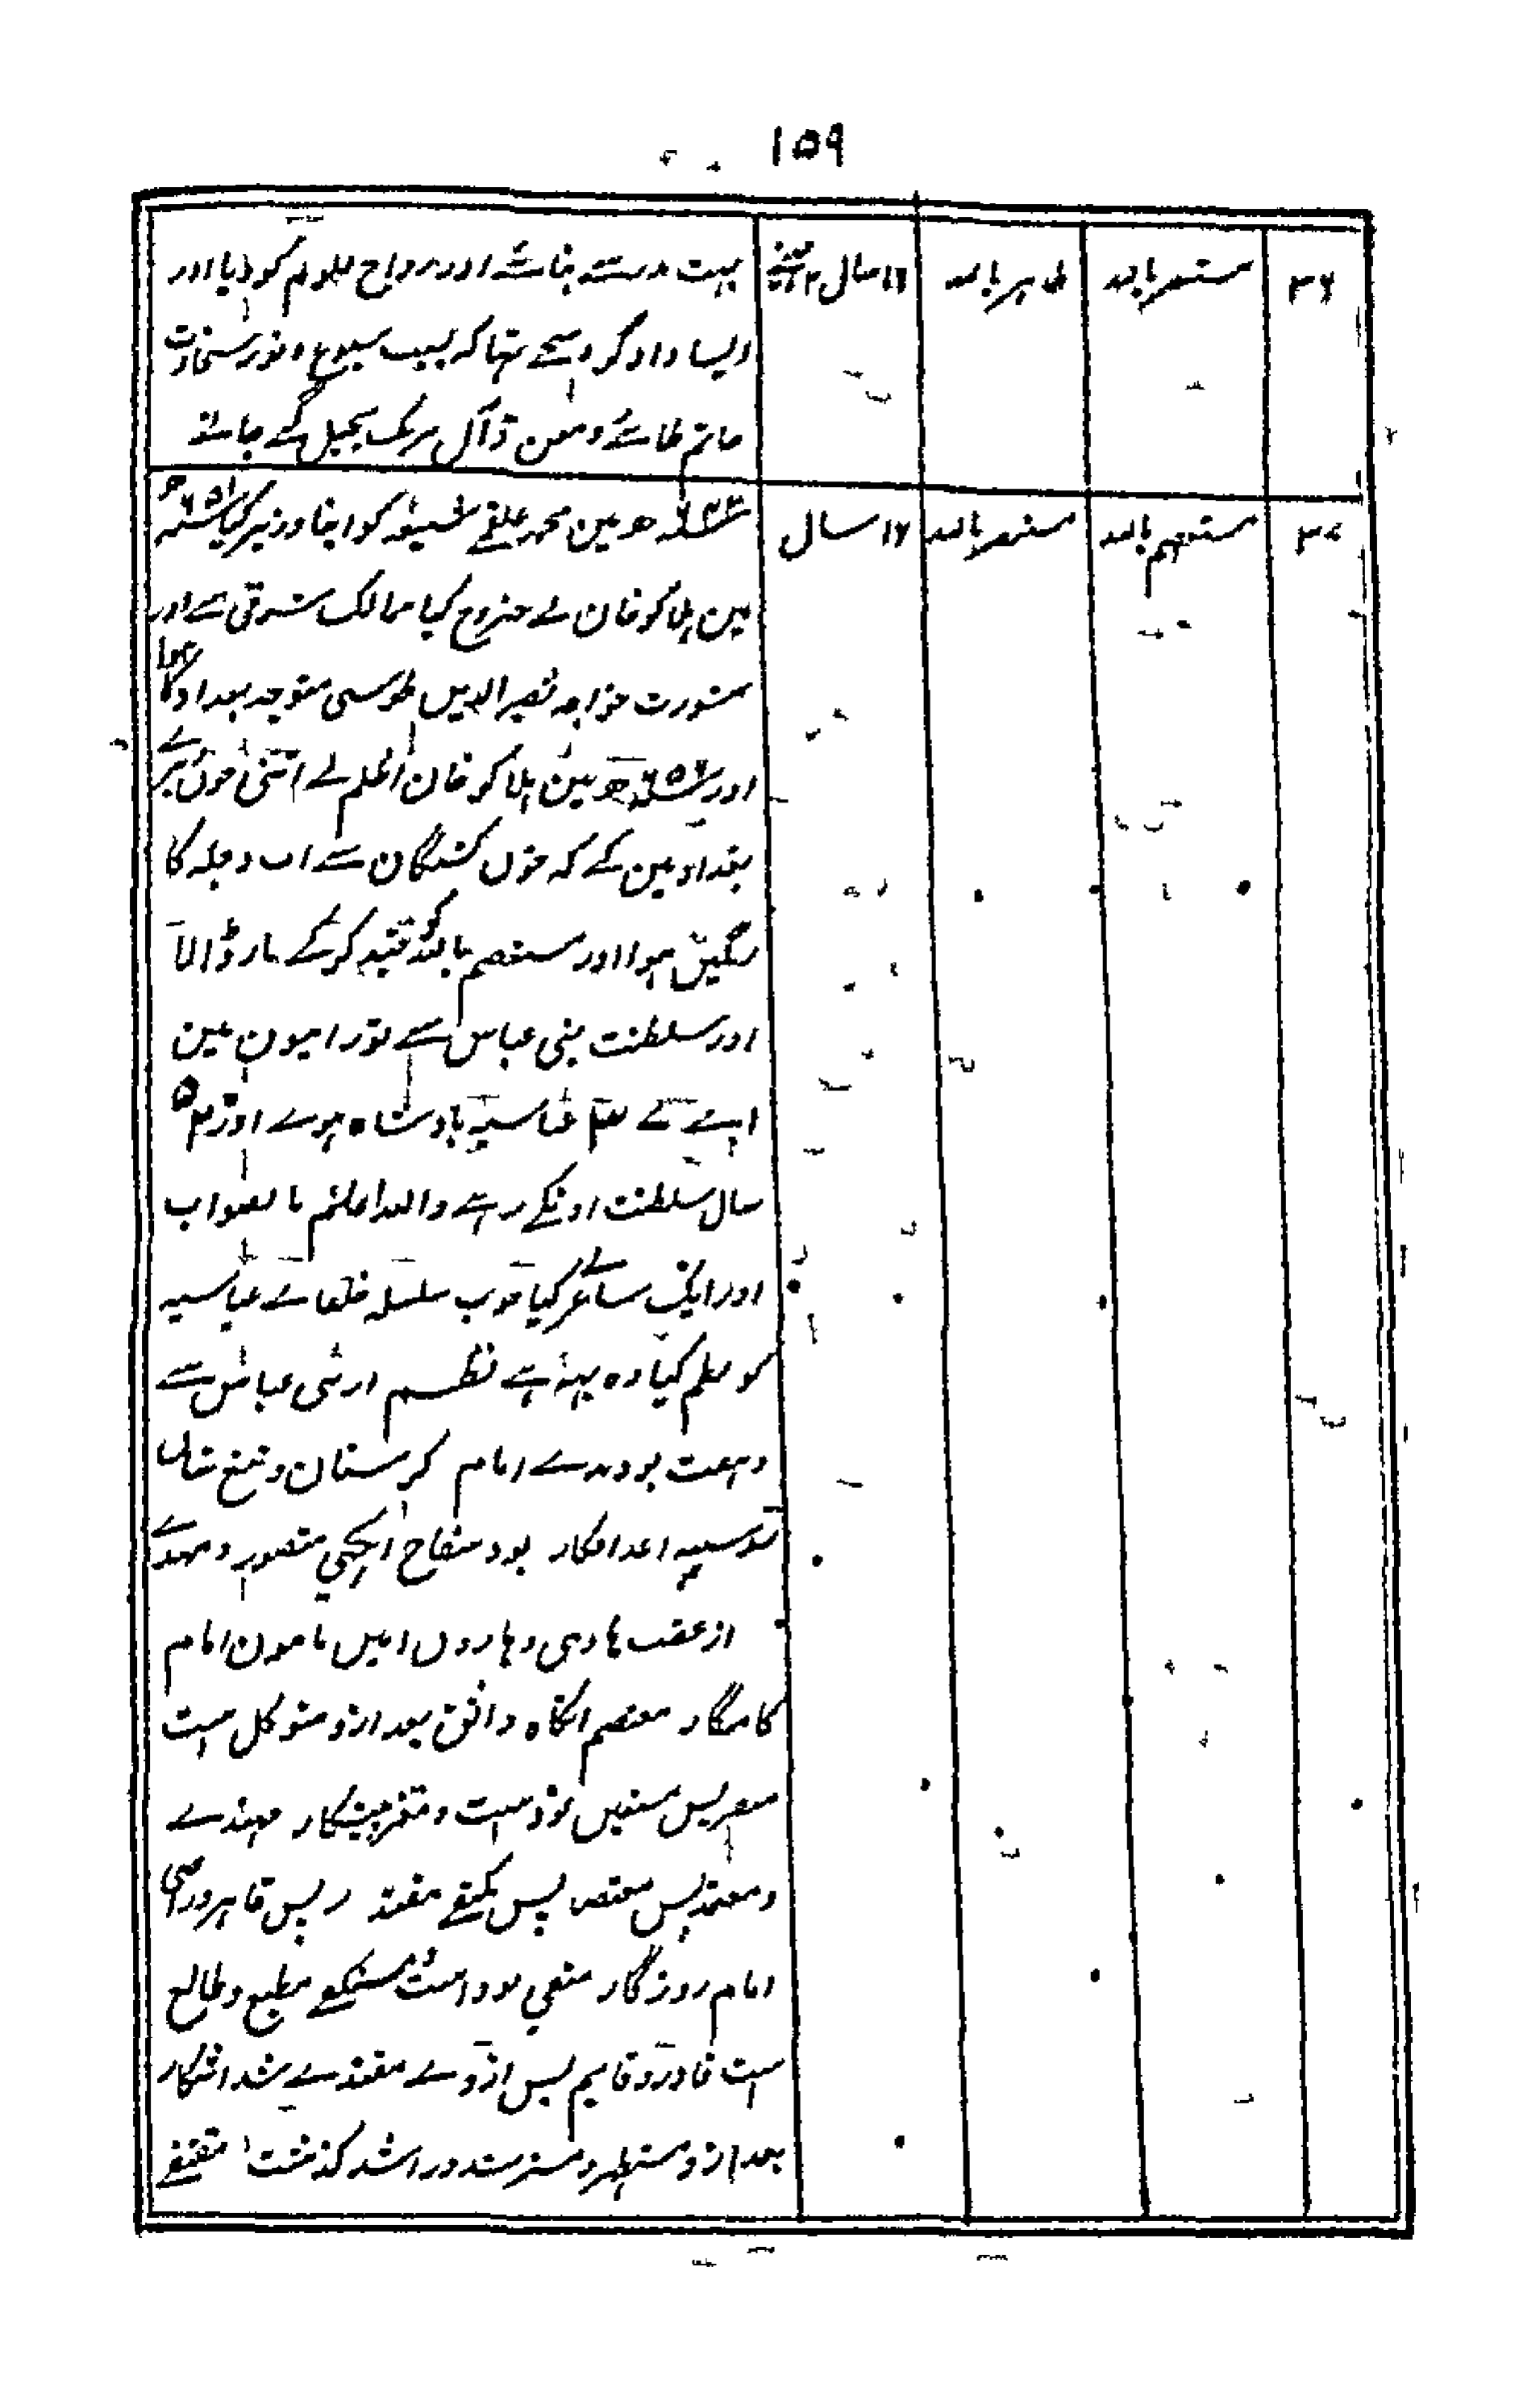 ۱۵۹
۳۶ مستنصر باللہ طاہر باللہ ۱۶ سال ۲ مہینے بہت مدرسے بنائے اور رواج علوم کو دیا اور
ایسا دادگر و سخی تہا کہ بسبب شیوع و نور سخاوت
حاتم طائے و معن و آل برمک بخیل گنے جاتے
۳۷ مستعصم باللہ مستنصر باللہ ۱۶ سال ھ مین محمد علقمے شیعہ کو اپنا وزیر کیا ۶۵۱ھ
مین ہلاکو خان نے خروج کیا ممالک شرقی سے اور
مشورت خواجہ نصیر الدین طوسی متوجہ بغداد کا ہوا
اور ۶۵۶ھ مین ہلاکو خان اظلم نے اتنی خون ریزے
بغداد مین کے کہ خون کشتگان سے اب دجلہ کا
رنگین ہوا اور مستعصم باللہ کو قید کر کے مار ڈالا
اور سلطنت بنی عباس سے تورامیون مین
آے عباسیہ بادشاہ ہوے اور ۵۲۴
سال سلطنت اونکے رہے واللہ اعلم بالصواب
اور ایک شاعر نے کیا خوب سلسلہ خلفاے عباسیہ
کو نظم کیا وہ یہہ ہے نظم ازبنی عباس سے
و ہفت بودندے امام کز سنان و تیغ شان
شد سینہ اعدا فگار بود سفاح انگہی منصور و مہدے
از عقب ہادی و ہارون امین مامون امام
کامگار معتصم انگاہ واثق بعد ازو متوکل است
منتصر پس مستعین بودست و معتز مہتدے
و معتمد پس معتضد پس مکتفے مقتدر پس قاہر و راضی
امام روزگار متقی بوداست مستکفے مطیع و طایع
است قادر و قایم پس ازوے مقتدے شد اشکار
بعد ازو مستظہر و مسترشد و راشد گذشت مقتفے